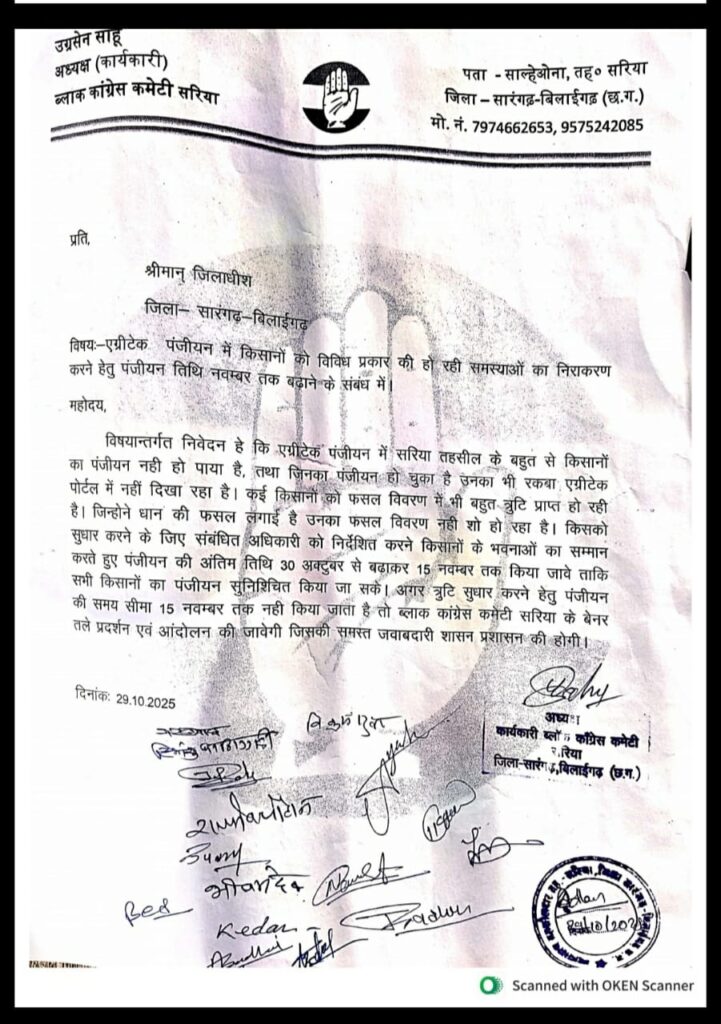 उग्रसेन साहू
अध्यक्ष (कार्यकारी)
ब्लाक कांग्रेस कमेटी सरिया
पता - साल्हेओना, तह० सरिया
जिला – सारंगढ़-बिलाईगढ़ (छ.ग.)
मो. नं. 7974662653, 9575242085
प्रति,
श्रीमान् जिलाधीश
जिला– सारंगढ़–बिलाईगढ़
विषयः–एग्रीटेक पंजीयन में किसानों को विविध प्रकार की हो रही समस्याओं का निराकरण
करने हेतु पंजीयन तिथि नवम्बर तक बढ़ाने के संबंध में।
महोदय,
विषयान्तर्गत निवेदन हे कि एग्रीटेक पंजीयन में सरिया तहसील के बहुत से किसानों
का पंजीयन नही हो पाया है, तथा जिनका पंजीयन हो चुका है उनका भी रकबा एग्रीटेक
पोर्टल में नहीं दिखा रहा है। कई किसानों को फसल विवरण में भी बहुत त्रुटि प्राप्त हो रही
है। जिन्होने धान की फसल लगाई है उनका फसल विवरण नही शो हो रहा है। किसको
सुधार करने के जिए संबंधित अधिकारी को निर्देशित करने किसानों के भवनाओं का सम्मान
करते हुए पंजीयन की अंतिम तिथि 30 अक्टुबर से बढ़ाकर 15 नवम्बर तक किया जावे ताकि
सभी किसानों का पंजीयन सुनिश्चित किया जा सके। अगर त्रुटि सुधार करने हेतु पंजीयन
की समय सीमा 15 नवम्बर तक नही किया जाता है तो ब्लाक कांग्रेस कमेटी सरिया के बेनर
तले प्रदर्शन एवं आंदोलन की जावेगी जिसकी समस्त जवाबदारी शासन प्रशासन की होगी।
दिनांक: 29.10.2025
अध्यक्ष
कार्यकारी ब्लॉक कांग्रेस कमेटी
सरिया
जिला-सारंगढ़,बिलाईगढ़ (छ.ग.)
Bed
Kedar
Scanned with OKEN Scanner